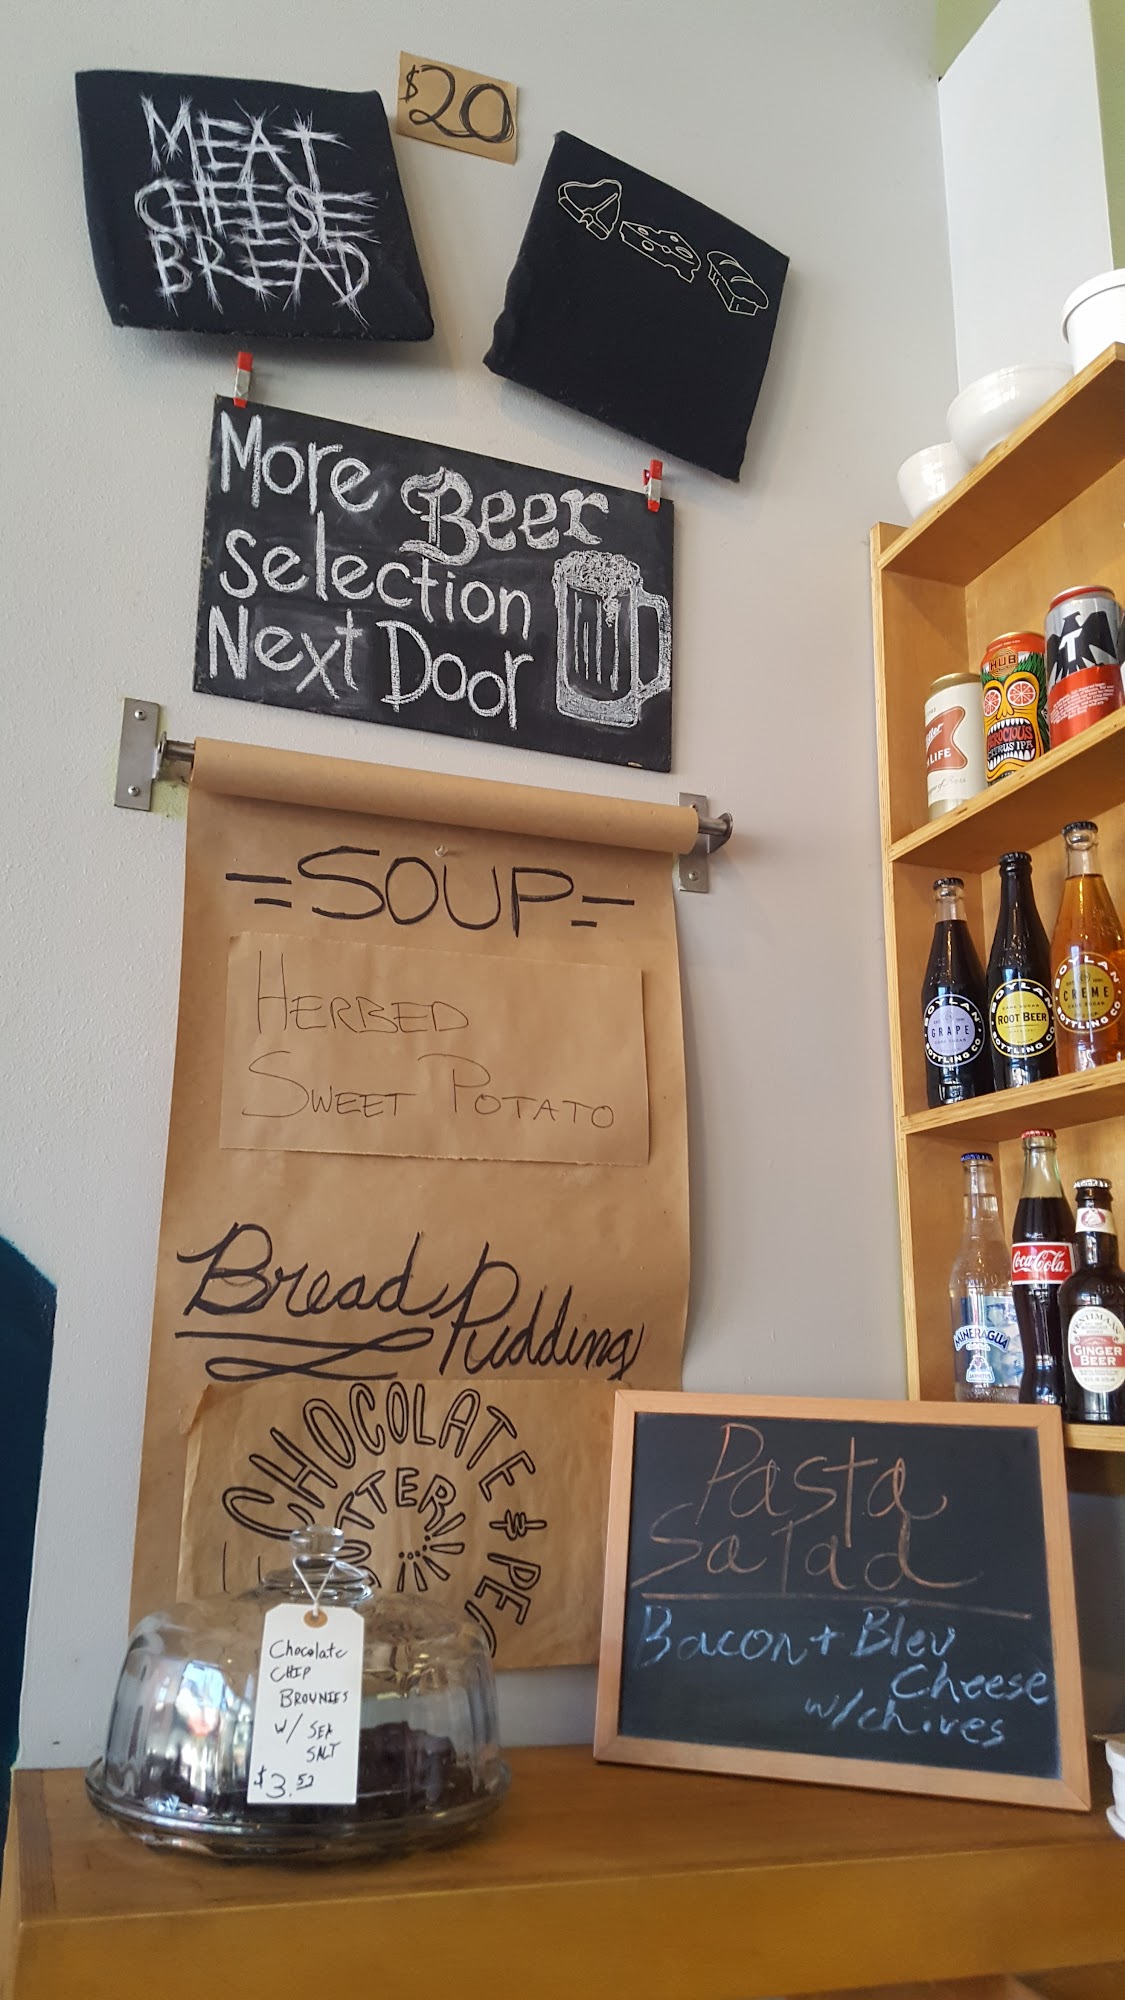 $20
MEAT
CHEESE
BREAD
More Beer
selection
Next Door
=SOUP=
HERBED
SWEET POTATO
Bread Pudding
CHOCOLATE &
Chocolate
CHIP
BROWNIES
W/ SEA
SALT
$3.52
Pasta
Salad
Bacon + Bleu
Cheese
w/chives
LIFE
HUB
CITRUS IPA
T
BOYLAN
GRAPE
BOTTLING CO.
BOYLAN
CANE SUGAR
ROOT BEER
BOTTLING CO.
BOYLAN
CREME
BOTTLING CO.
MINERAGUA
Coca-Cola
FENTIMANS
GINGER
BEER